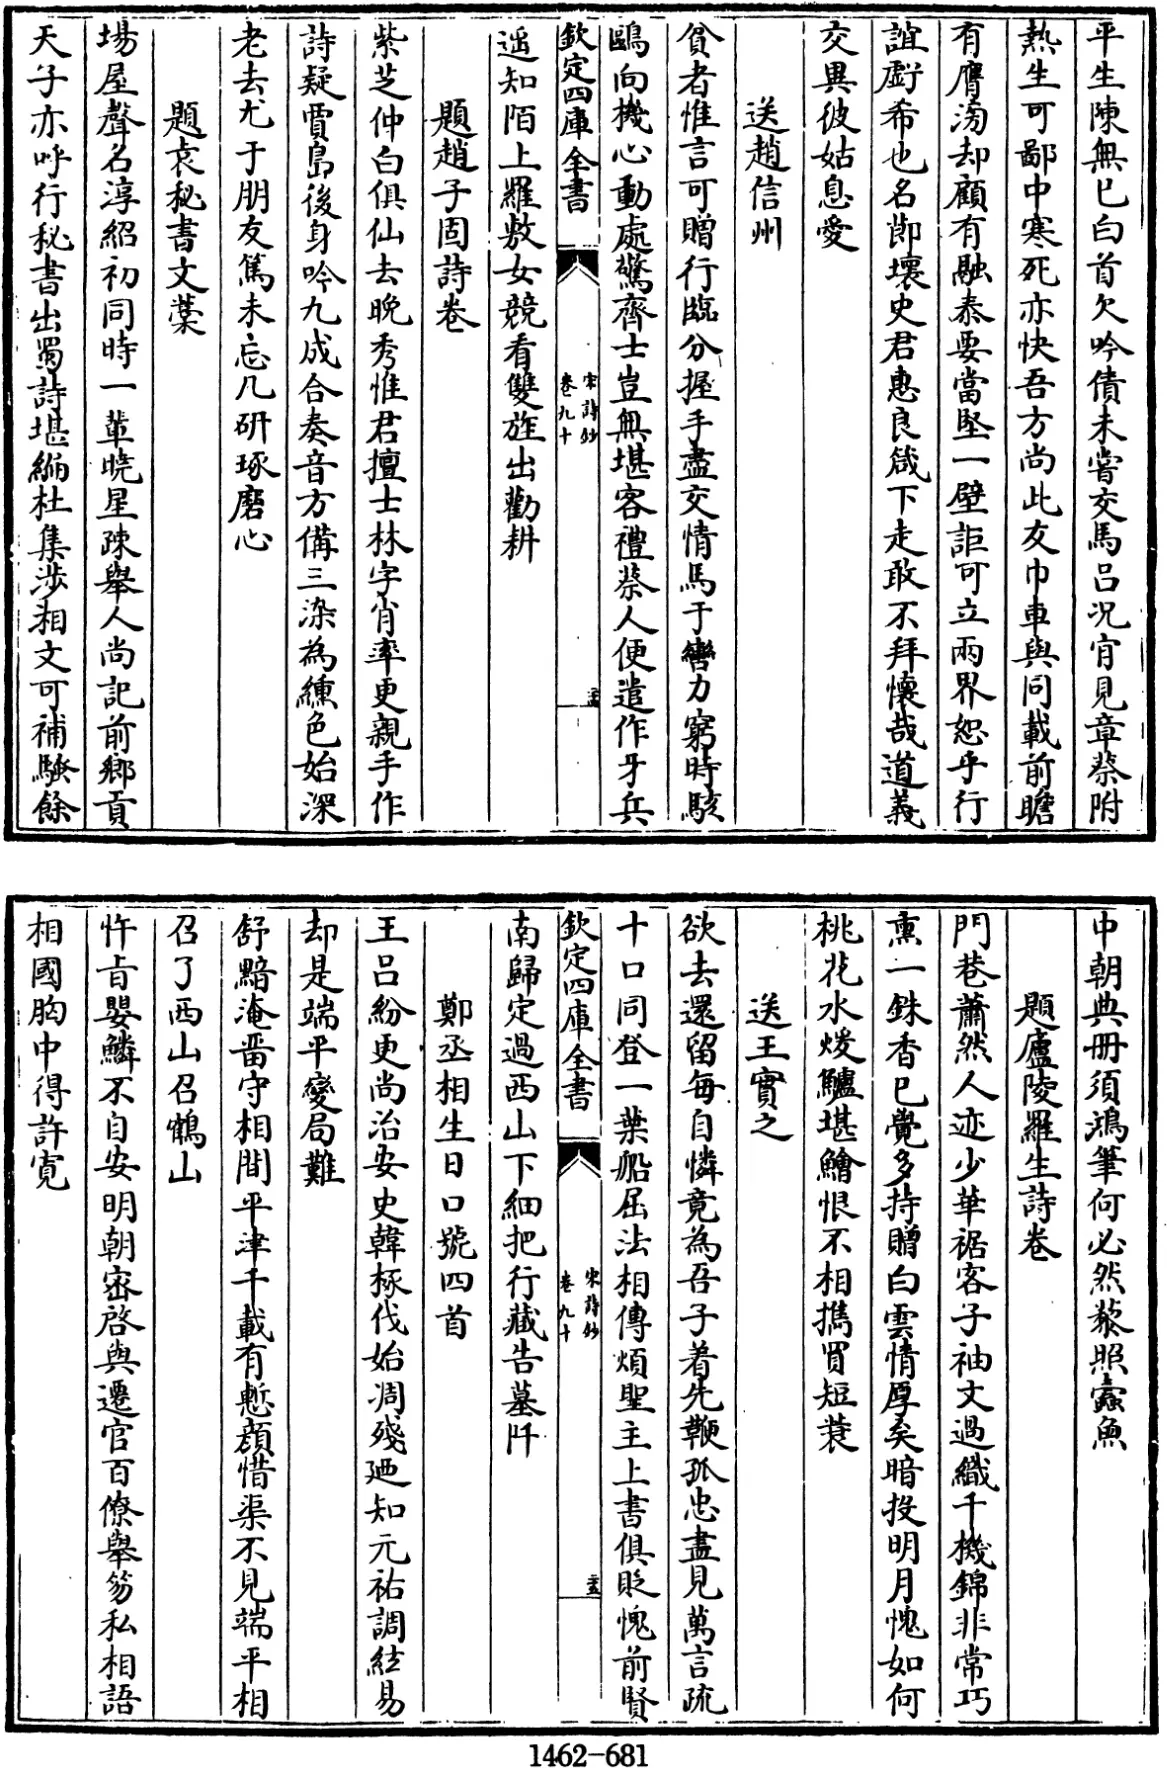 平生陳無已白首欠吟債未嘗交馬吕况肯見章蔡附
熱生可鄙中寒死亦快吾方尚此友巾車與同載前瞻
有膺滂却顧有融泰要當堅一壁詎可立兩界恕乎行
誼虧希也名節壞史君惠良箴下走敢不拜懷哉道義
交異彼姑息愛
送趙信州
貧者惟言可贈行臨分握手盡交情馬于轡力窮時駭
鷗向機心動處驚齊士豈無堪客禮蔡人便遣作牙兵
欽定四庫全書
宋詩鈔
卷九十
遥知陌上羅敷女競看雙旌出勸耕
題趙子固詩卷
紫芝仲白俱仙去晚秀惟君擅士林字肖率更親手作
詩疑賈島後身吟九成合奏音方備三染為纁色始深
老去尤于朋友篤未忘几研琢磨心
題袁秘書文藁
場屋聲名淳紹初同時一輩曉星疎舉人尚記前鄉貢
天子亦呼行秘書出蜀詩堪編杜集涉湘文可補騷餘
中朝典冊須鴻筆何必然藜照蠹魚
題廬陵羅生詩卷
門巷蕭然人迹少華裾客子袖文過織千機錦非常巧
熏一銖香已覺多持贈白雲情厚矣暗投明月愧如何
桃花水煖鱸堪鱠恨不相㩦買短蓑
送王實之
欲去還留每自憐竟為吾子着先鞭孤忠盡見萬言疏
十口同登一葉船屈法相傳煩聖主上書俱貶愧前賢
欽定四庫全書
宋詩鈔
卷九十
南歸定過西山下細把行藏告墓阡
鄭丞相生日口號四首
王吕紛更尚治安史韓椓伐始凋殘廼知元祐調絃易
却是端平變局難
舒黯淹畱守相間平津千載有慙顔惜渠不見端平相
召了西山召鶴山
忤㫖嬰鱗不自安明朝密啓與遷官百僚舉笏私相語
相國胸中得許寛
1462-681